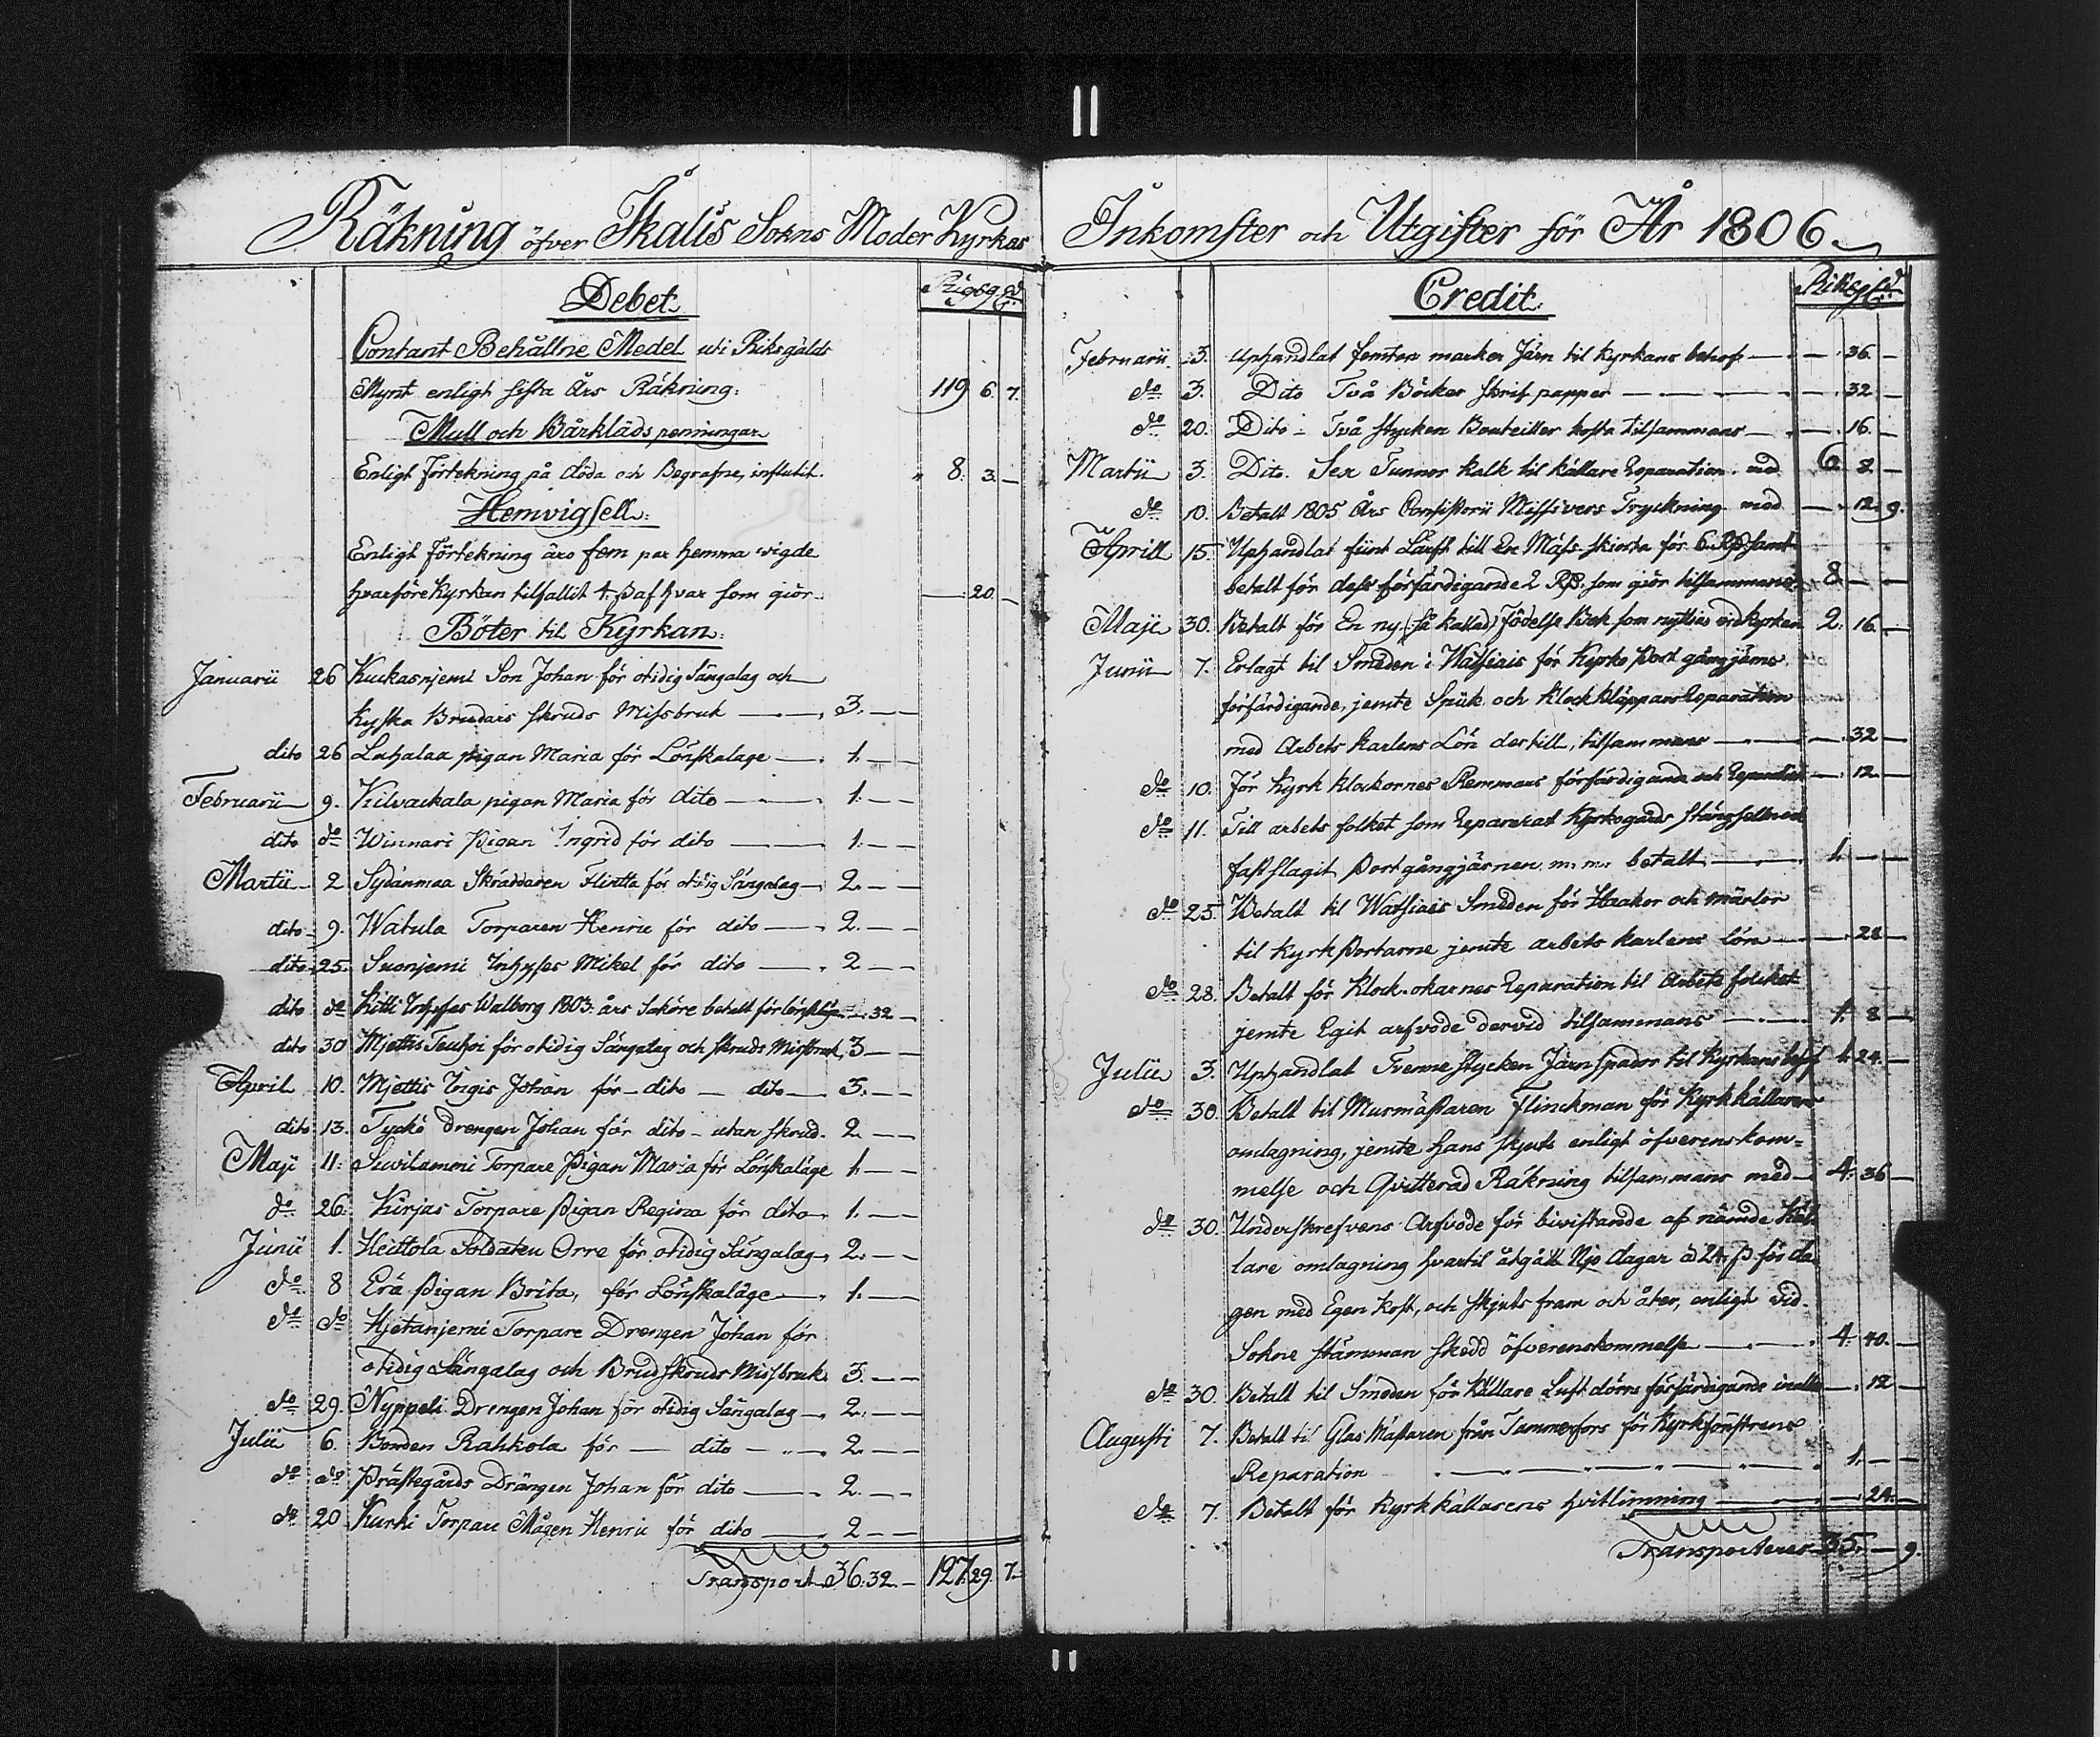 Räkning öfver Ikalis Sokns Moder Kyrkas
Debet. Riksg. Sd.
Contant Behållne Medel uti Riksgälds
Mynt enligt sista Års Räkning: 119 6. 7.
Mull och Bårkläds penningar
Enligt Förtekning på döda och Begrafne, influtit. 8. 3. —
Hemvigsell.
Enligt Förtekning äro fem par hemma vigde
hvarföre Kyrkan tilfallit 4. ß af hvar som giör — 20. —
Böter til Kyrkan.
Januarii 26 Kuckasnjemi Son Johan för otidig Sängalag och
Kyska Brudars skruds Missbruk — 3. — —
dito 26 Luhalaa pigan Maria för Lönskaläge — 1. — —
Februarii 9. Kilvackala pigan Maria för dito — 1. — —
dito do Winnari Pigan Ingrid för dito — 1. — —
Martii 2 Sydänmaa Skräddaren Flintta för otidig Sängalag — 2. — —
dito 9. Watula Torparen Henric för dito — 2. — —
dito 25. Suonjemi Inhyses Mikel för dito — 2 — —
dito do Kitti Inhyses Walborg 1803. års Saköre betalt för lönskläge — 32 —
dito 30 Mjettis för otidig Sängalag och skruds Missbruk, 3 — —
April 10. Mjettis Ingis Johan för — dito — dito — 3. — —
dito 13. Tyckö Drengen Johan för dito — utan skrud. 2. — —
Maji 11. Suvilammi Torpare Pigan Maria för Lönskaläge 1. — —
do 26. Kirjas Torpare Pigan Regina för dito 1. — —
Junii 1. Heittola Soldaten Orre för otidig Sängalag 2. — —
do 8 Erä Pigan Brita, för Lönskaläge — 1. — —
do do Hjetanjemi Torpare Drengen Johan för
otidig Sängalag och Brudskruds Missbruk 3. — —
do 29. Nyppeli Drengen Johan för otidig Sängalag — 2. — —
Julii 6. Bonden Rahkola för — dito — 2. — —
do do Prästegårds Drängen Johan för dito — 2. — —
do 20 Kurki Torpare Mågen Henric för dito — 2 — —
Transport 36. 32. — 127. 29. 7.
Inkomster och Utgifter för År 1806.
Credit. Riksg. Sd.
Februarii 3. Uphandlat femton marker Järn til Kyrkans behof — 36. —
do 3. Dito Två Böcker skrif papper — 32 —
do 20. Dito Två stycken Bouteiller kosta tilsammans — 16. —
Martii 3. Dito. Sex Tunnor kalk til källare Reparation med 6. 8. —
do 10. Betalt 1805 Års Consistorii Missivers Tryckning med — 12. 9.
Aprill 15. Uphandlat fiint Lärft till En Mäss skiorta för 6. Rß samt
betalt för dess förfärdigande 2 Rß. som giör tilsammans 8 — —
Maji 30. Betalt för En ny (så kallad) Födelse Bok som nyttias vid Kyrkan 2. 16. —
Junii 7. Erlagt til Smeden i Watsiais för Kyrko Port gångjärns
förfärdigande, jemte Spiik och Klock kläppars Reparation
med Arbets karlens Lön dertill, tilsammans — 32 —
do 10. För Kyrk klockornes Remmars förfärdigande och Reparation — 12. —
do 11. Till arbets folket som Reparerat Kyrkogårds stängsel och
fastslagit Portgångjärnen m: m: betalt — 1. — —
do 25. Betalt til Watsiais Smeden för Haakor och märlor
til Kyrk Portarne jemte arbets karlens lön — 28 —
do 28. Betalt för Klock-okarnes Reparation til Arbets folcket
jemte Egit arfvode dervid tilsammans — 1. 8. —
Julii 3. Uphandlat Tvenne stycken Järnspador til Kyrkans behof 1. 24. —
do 30. Betalt til Murmästaren Flinckman för Kyrkkällaren
omlagning, jemte hans skjuts enligt öfverenskom=
melse och Qvitterad Räkning tilsammans med — 4. 36 —
do 30. Underskrefvens Arfvode för bivistande af nämde Käl
lare omlagning hvartil åtgått Nijo dagar a 24. ß för da
gen med Egen kost, och skjuts fram och åter, enligt vid
Sokne stämman skedd öfverenskommelse — 4. 40. —
do 30. Betalt til Smeden för Källare Luft dörrs förfärdigande — 12 —
Augusti 7. Betalt til Glas Mästaren från Tammerfors för Kyrkfönstrens
Reparation — 1. — —
do 7. Betalt för Kyrkkällarens hvitlimning — 24. —
Transporteres 35. — 9.